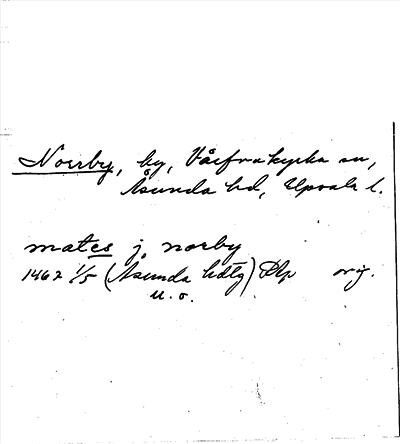 Norrby, by, Vårfrukyrka sn,
Åsunda hd, Upsala l.
mates j norby
1462 1/5 (Åsunda hdtg) Plp orig.
u. o.